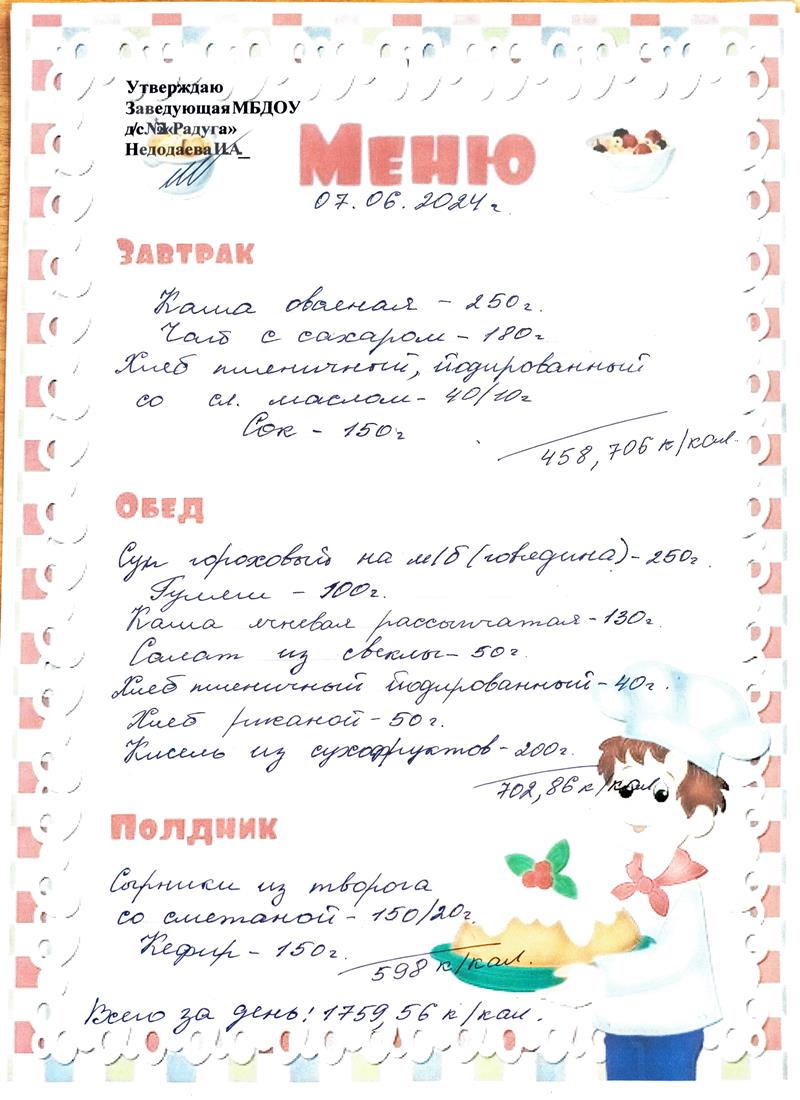 Утверждаю
Заведующая МБДОУ
д/с №2 «Радуга»
Недодаева И.А_
Меню
07.06.2024г.
Завтрак
Каша овсяная - 250г.
Чай с сахаром - 180г
Хлеб пшеничный, йодированный
со сл. маслом - 40/10г
Сок - 150г
458,706 к/кал.
Обед
Суп гороховый на м/б (говядина) - 250г.
Гуляш - 100г.
Каша ячневая рассыпчатая - 130г.
Салат из свеклы - 50г.
Хлеб пшеничный йодированный - 40г.
Хлеб ржаной - 50г.
Кисель из сухофруктов - 200г.
702,86 к/кал
Полдник
Сырники из творога
со сметаной - 150/20г.
Кефир - 150г.
598 к/кал.
Всего за день: 1759,56 к/кал.